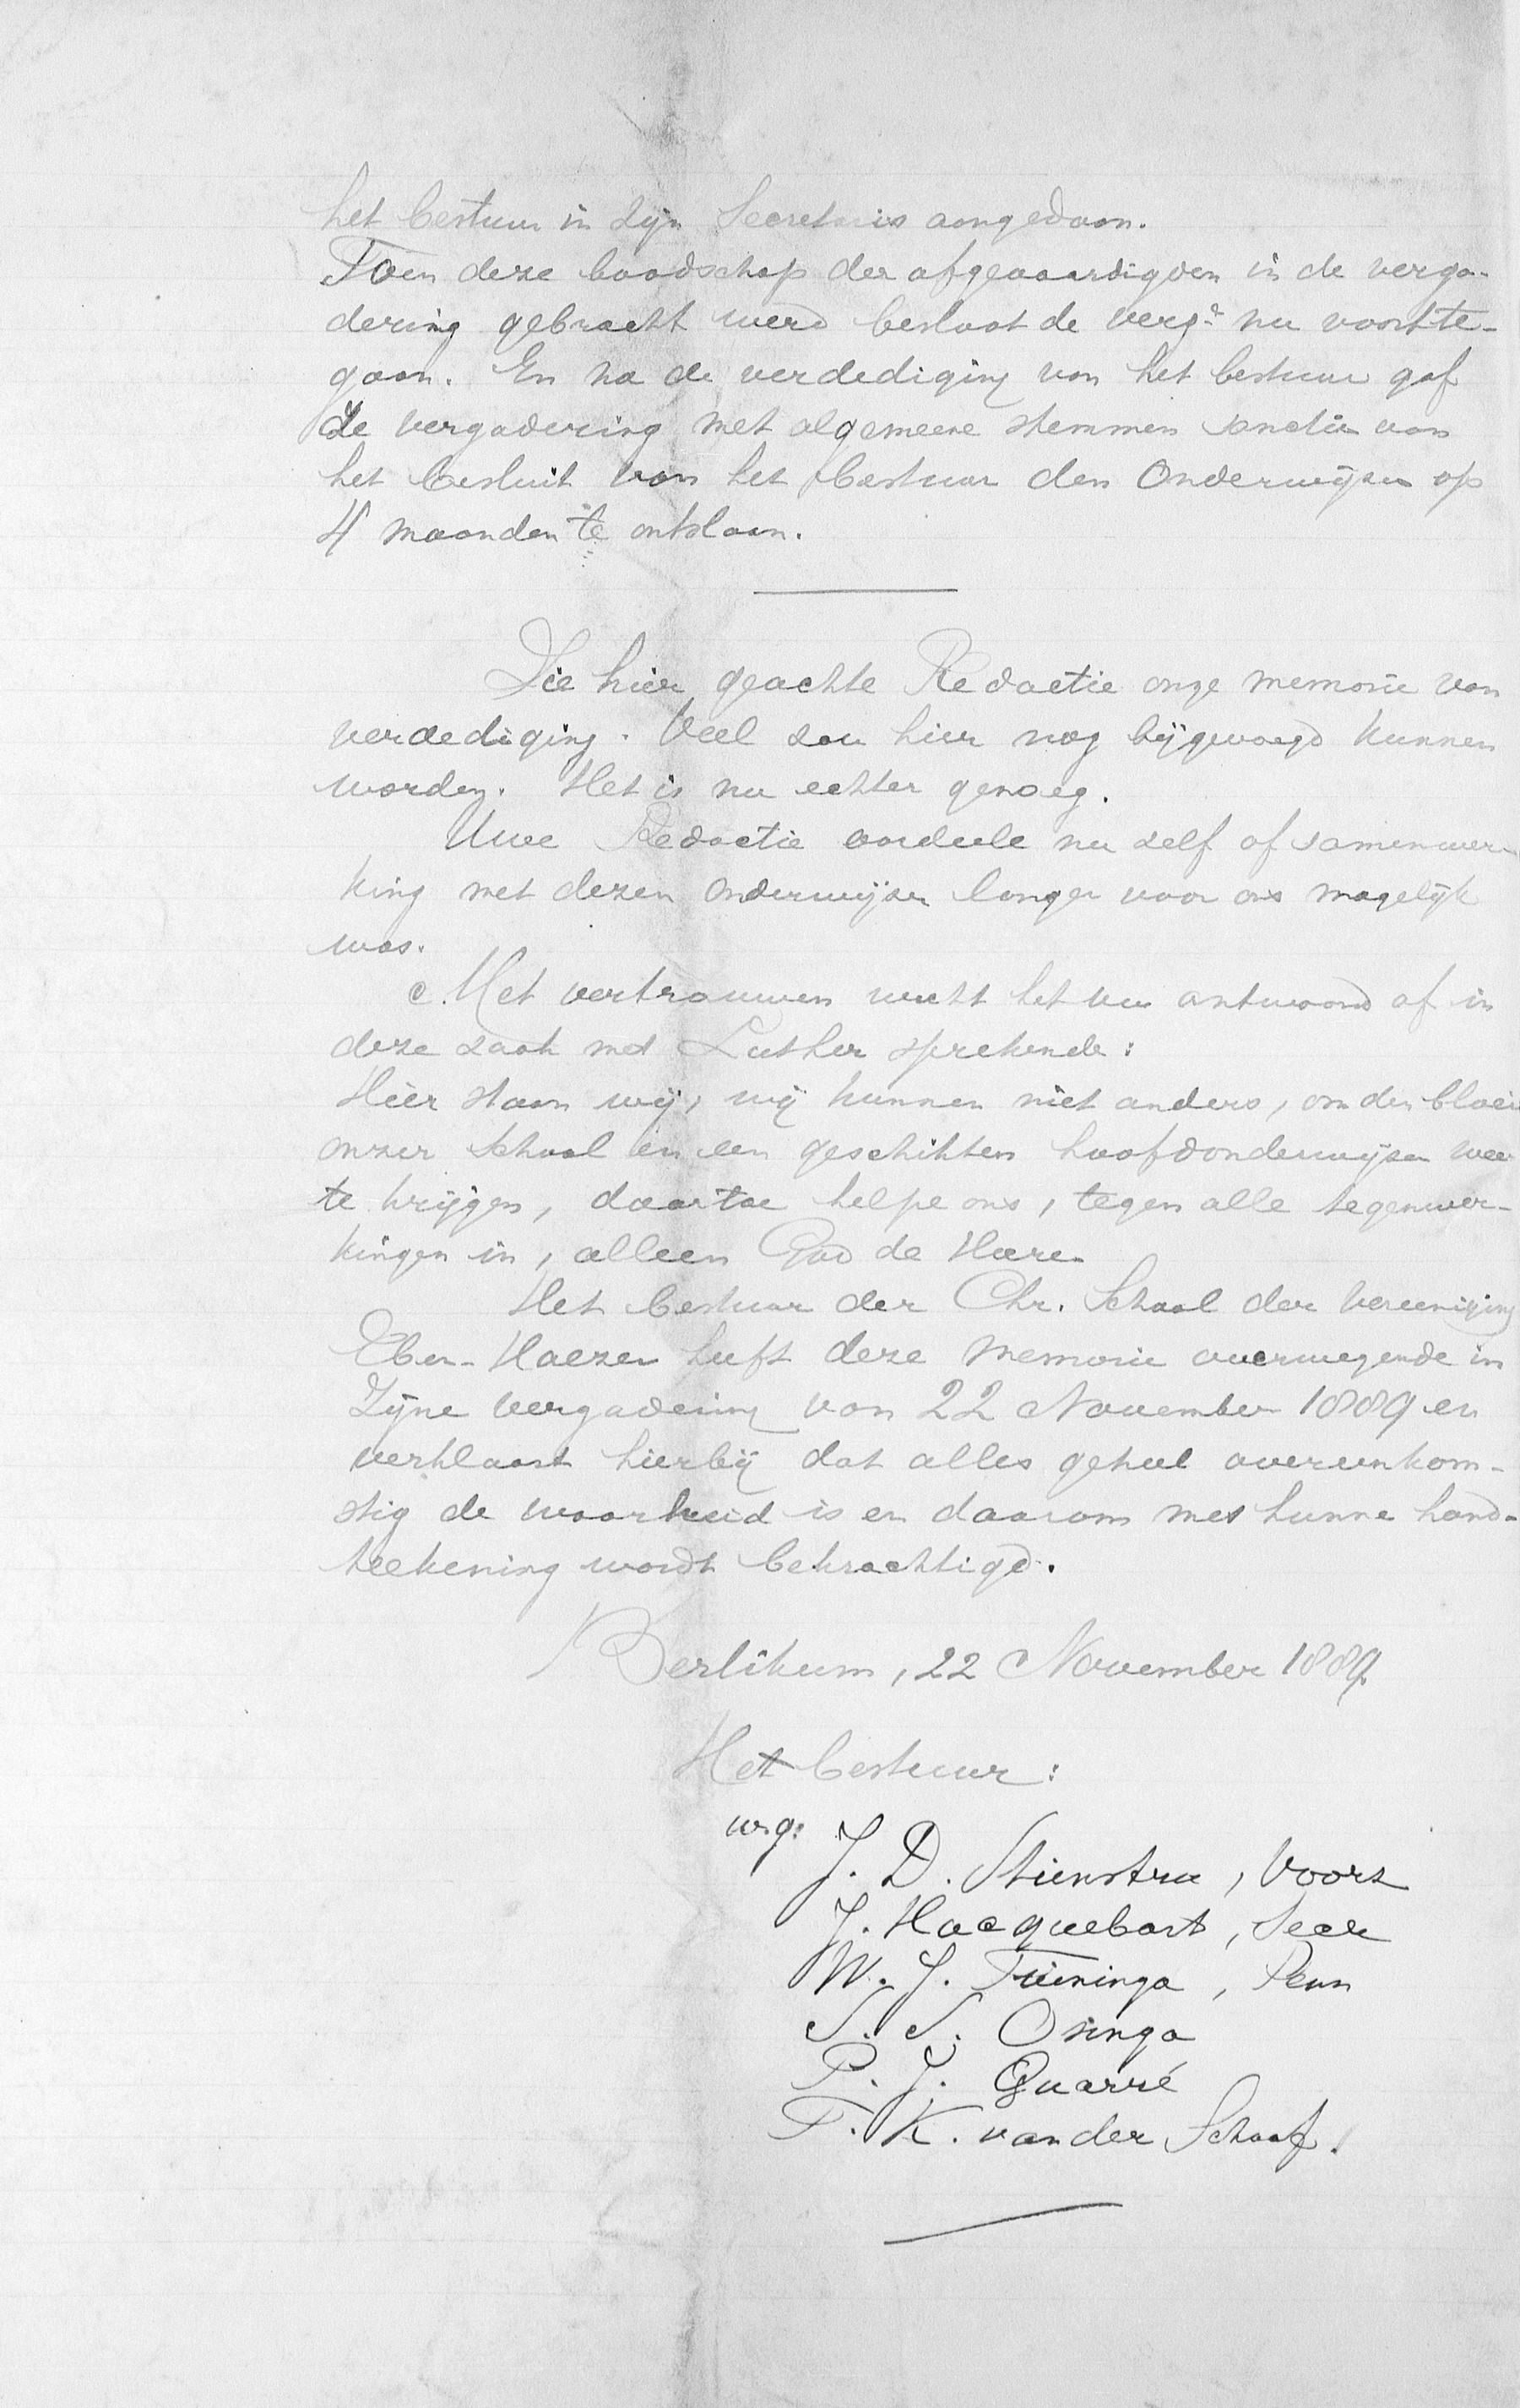 het bestuur in zijn Secretaris aangedaan.
Toen deze boodschap der afgevaardigden in de verga-
dering gebracht werd besloot de verg.? nu voort te-
gaan. En na de verdediging van het bestuur gaf
de vergadering met algemeene stemmen sanctie aan
het besluit van het bestuur den Onderwijzer op
4 maanden te ontslaan.
Zie hier geachte Redactie onze memorie van
verdediging. Veel zou hier nog bijgevoegd kunnen
worden. Het is nu echter genoeg.
Uwe Redactie oordeele nu zelf of samenwer-
king met dezen onderwijzer langer voor ons mogelijk
was.
Met vertrouwen wacht het uw antwoord af in
deze zaak met Luther sprekende:
Hier staan wij, wij kunnen niet anders, om den bloei
onzer school en een geschikten hoofdonderwijzer weer
te krijgen, daartoe helpe ons, tegen alle tegenwer-
kingen in, alleen God de Heere
Het bestuur der Chr. School der Vereeniging
Eben-Haezer heeft deze memorie overwegende in
Zijne vergadering van 22 November 1889 en
verklaart hierbij dat alles geheel overeenkom-
stig de waarheid is en daarom met hunne hand-
teekening wordt bekrachtigd.
Berlikum, 22 November 1889.
Het bestuur:
w.g. J. D. Stienstra, Voorz
J. Hacquebart, Secr
W. J. Tuininga, Penn
S. S. Osinga
P. J. Quarré
T. K. van der Schaaf.